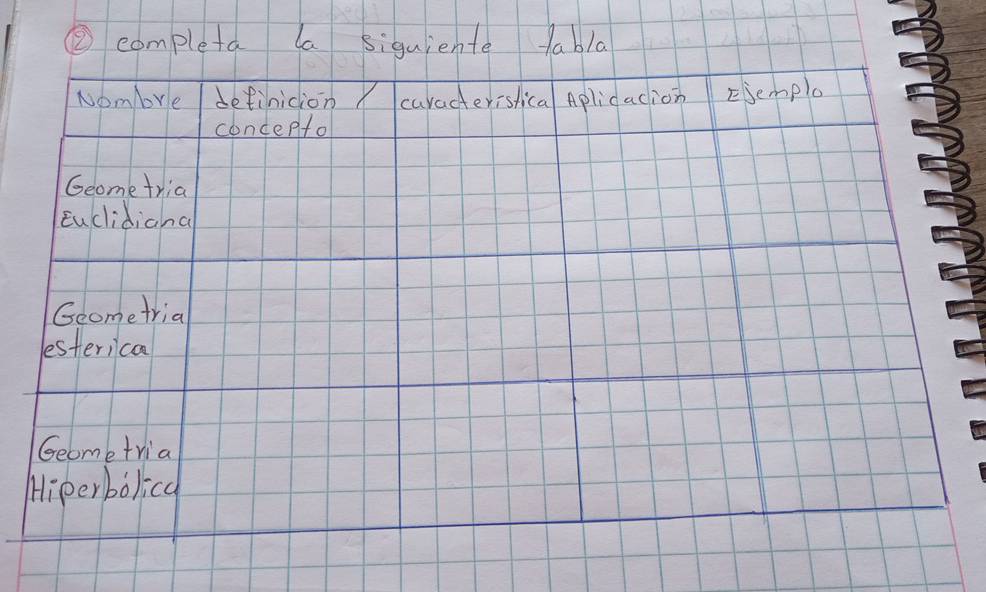 ② completa la siguiente tabla
Nombre definición / caracteristica Aplicación Ejemplo
concepto
Geometria
Euclidiana
Geometria
esferica
Geometria
Hiperbólica